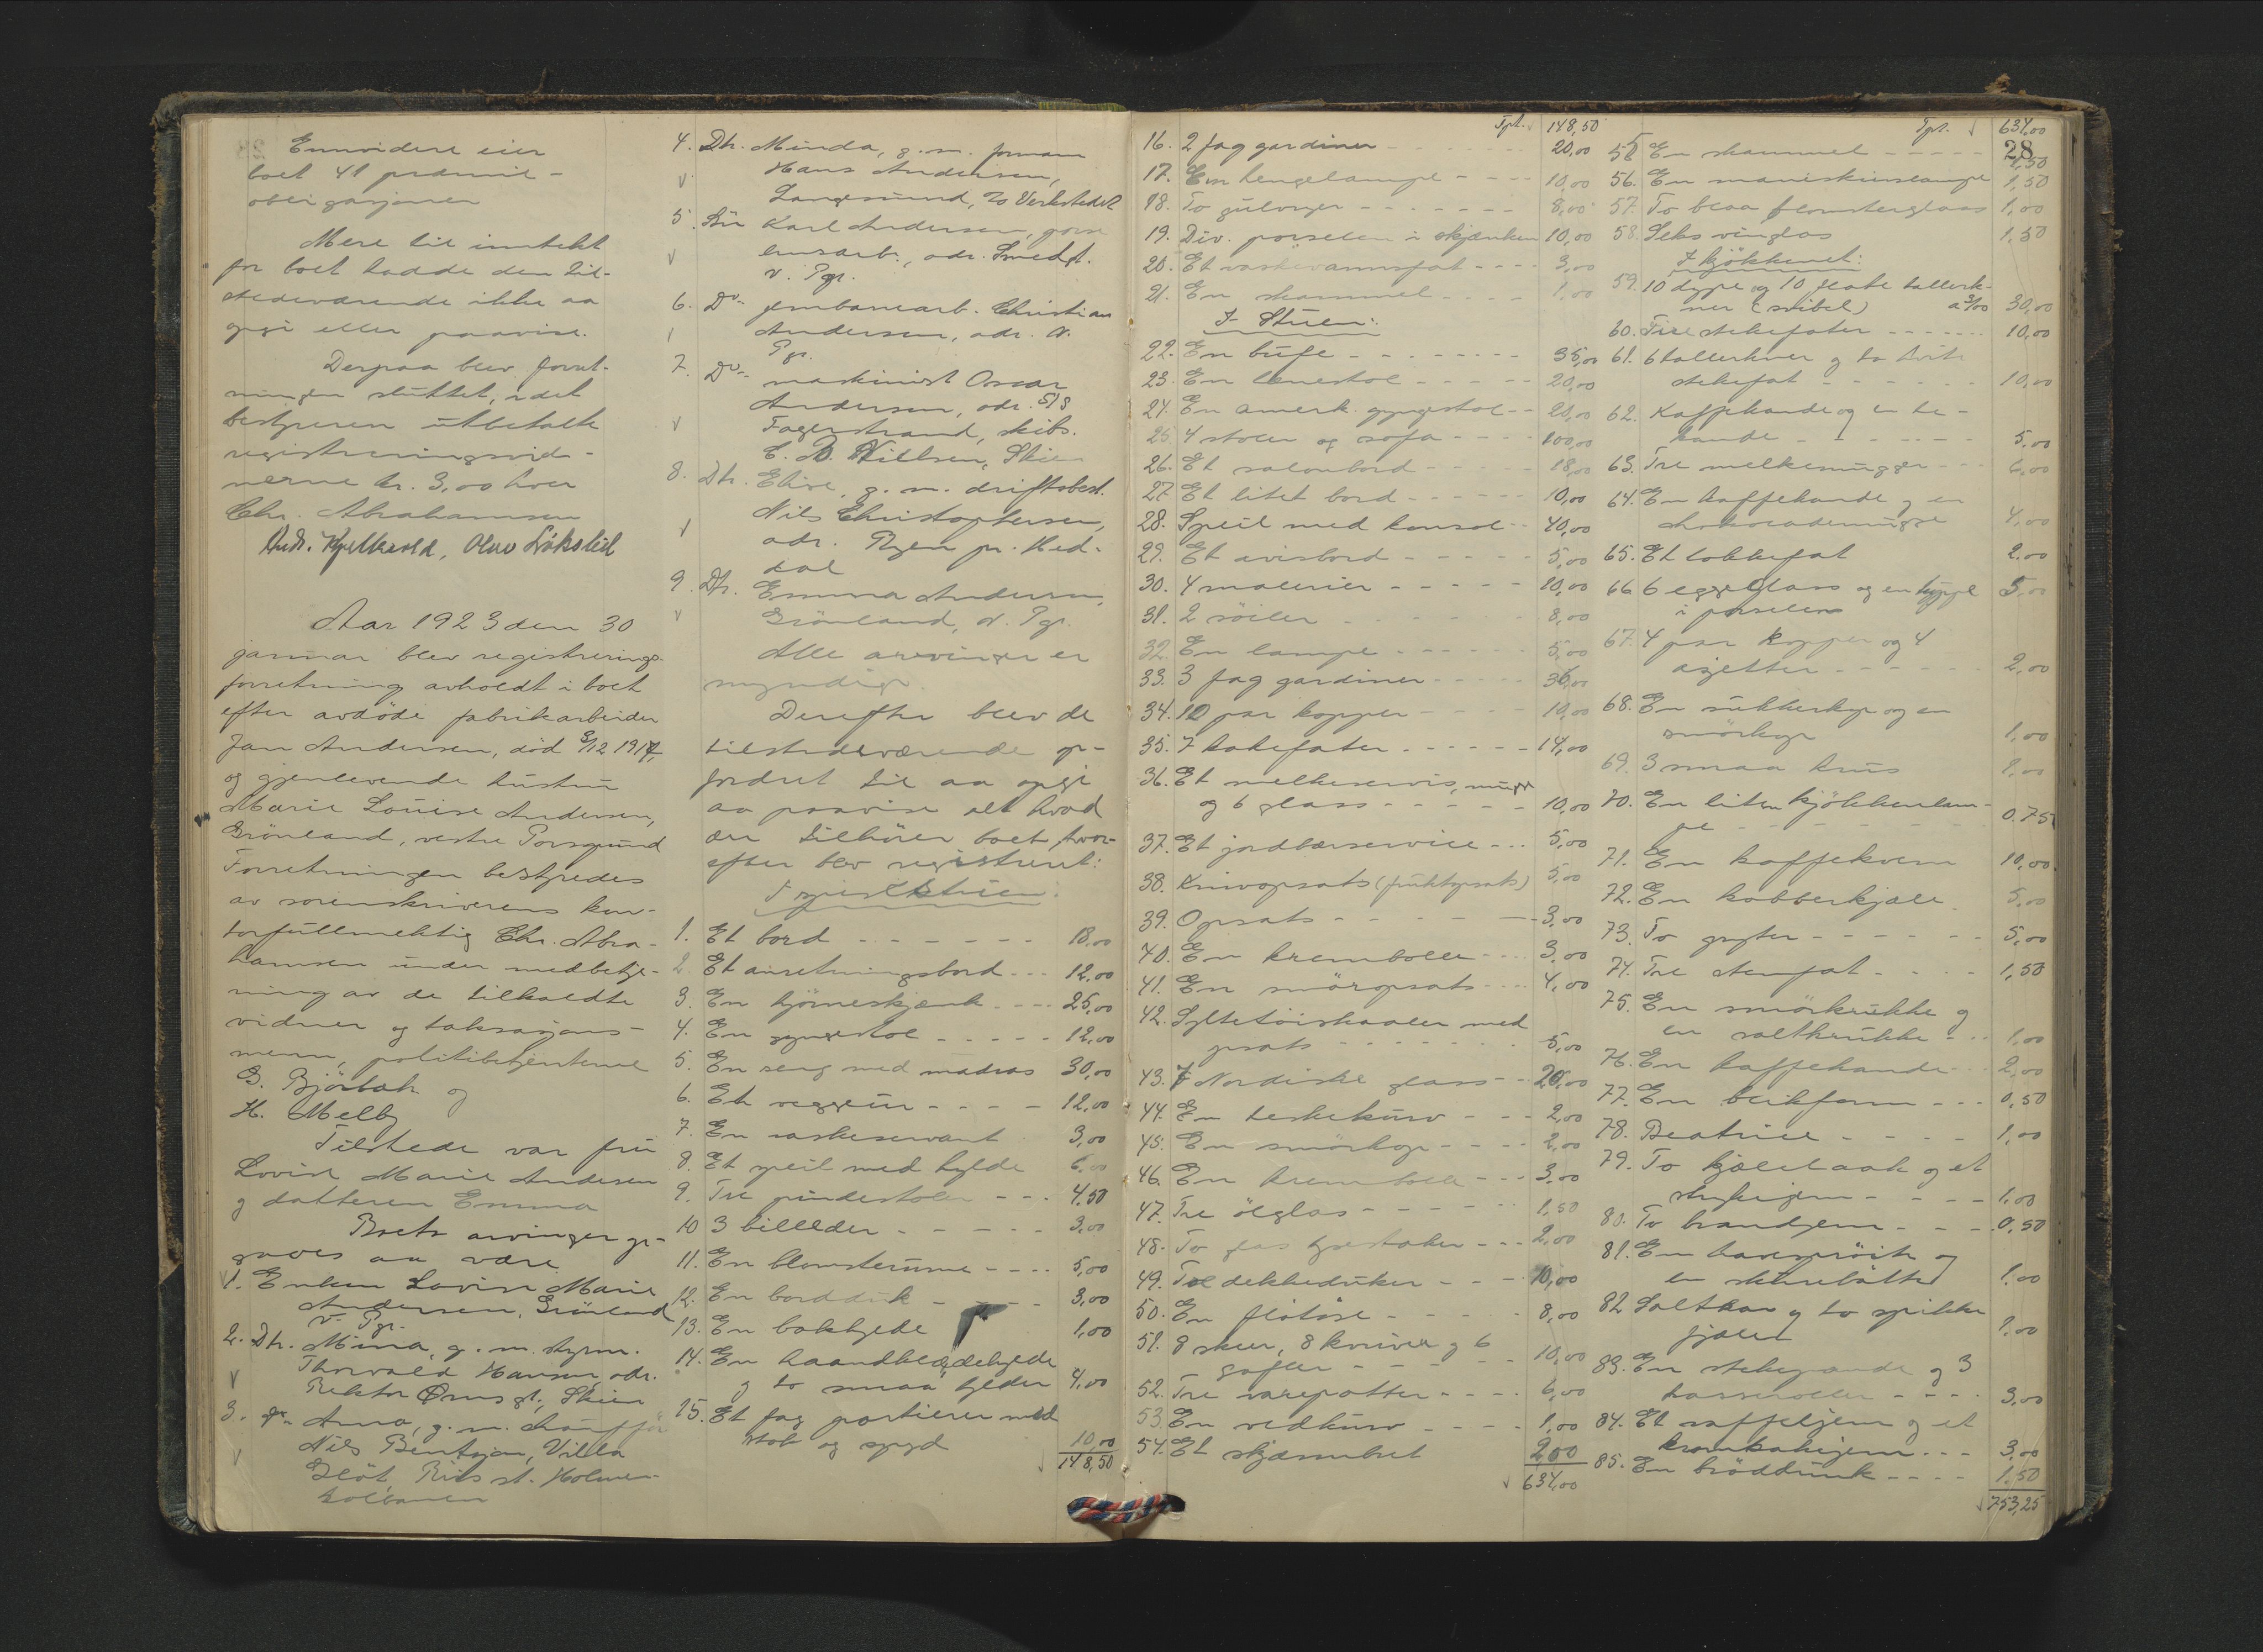 Ennvidere eier
boet 41 præmie-
obligasjoner
Mere til inntekt
for boet hadde den til-
stedeværende ikke aa
opgi eller paavise.
Derpaa blev forret-
ningen sluttet, idet
bestyreren utbetalte
registreringsvid-
nerne kr. 3,00 hver
Chr. Abrahamsen
Andr. Kjellevold, Olav Løkslid
Aar 1923 den 30
januar blev registrerings-
forretning avholdt i boet
efter avdöde fabrikarbeider
Jan Andersen, död 3/12 1917,
og gjenlevende hustru
Marie Louise Andersen,
Grönland, vestre Porsgrund
Forretningen bestyredes
av sorenskriverens kon-
torfullmektig Chr. Abra-
hamsen under medbetje-
ning av de tilkaldte
vidner og taksasjons-
menn, politibetjentene
G. Björbæk og
H. Melby
Tilstede var fru
Lovise Marie Andersen
og datteren Emma
Boets arvinger op-
gaves aa være
1. Enken Lovise Marie
Andersen, Grönland
v. Pgr.
2. Dtr. Mina, g. m. styrm.
Thorvald Hansen, adr.
Rektor Ørns gt, Skien
3. Do Anna, g. m. chauffør
Nils Bentzen, Villa
Gløt, Riis st. Holmen-
kolbanen
4. Dtr. Minda, g. m. formann
Hans Andersen,
Langesund, 20 Verkstedet
5. Sön Karl Andersen, porse
lensarb., adr. Smedgt.
v. Pgr.
6. Do jernbanearb. Christian
Andersen, adr. V.
Pgr.
7. Do maskinist Oscar
Andersen, adr. S/S
Fagerstrand, skibs.
C. B. Nillsen, Skien
8. Dtr. Elise, g. m. driftsbest.
Nils Christophersen,
adr. Ryen pr. Hed-
dal
9. Dtr. Emma Andersen,
Grönland, V. Pgr.
Alle arvinger er
myndige.
Derefter blev de
tilstedeværende op-
fordret til aa opgi
aa paavise alt hvad
der tilhörer boet hvor-
efter blev registrert:
I spisestuen:
1. Et bord - - - - - - 18,00
2. Et anretningsbord - - - 12,00
3. En hjörneskjenk - - - - 25,00
4. En gyngestol - - - - - 12,00
5. En seng med madras 30,00
6. Et veggur - - - - 12,00
7. En vaskeservant 3,00
8. Et speil med hylde 6,00
9. Tre pindestoler - - - 4,50
10 3 billeder - - - - - 3,00
11. En blomsterurne - - - - 5,00
12. En bordduk - - - - 3,00
13. En bokhylde 1,00
14. En haandklædehylde
og to smaa hylder 4,00
15. Et fag portierer med
stok og spyd 10,00
148,50
Tpt. 148,50
16. 2 fag gardiner - - - - - - 20,00
17. En hengelampe - - - 10,00
18. To gulvtepper - - - - - - 8,00
19. Div. porselen i skjænken 10,00
20. Et vaskevannsfat - - - - 3,00
21. En skammel - - - - 1,00
I Stuen:
22. En bufe - - - - - - - 35,00
23. En lenestol - - - - - 20,00
24. En amerk. gyngestol - - 20,00
25. 4 stoler og sofa - - - - 100,00
26. Et salonbord - - - - - 18,00
27. Et litet bord - - - - - - 10,00
28. Speil med konsol - - 40,00
29. Et avisbord - - - - - 5,00
30. 4 malerier - - - - - - 10,00
31. 2 söiler - - - - - - 8,00
32. En lampe - - - - - - 5,00
33. 3 fag gardiner - - - - - 36,00
34. 10 par kopper - - - - 10,00
35. 7 kakefater - - - - - - 14,00
36. Et melkeservis, mugge
og 6 glass - - - - - - 10,00
37. Et jordbærservice - - - 5,00
38. Knivopsats (fruktopsats) 5,00
39. Opsats - - - - - - 3,00
40. En kremboller - - - 3,00
41. En smöropsats - - - 4,00
42. Syltetöiskaaler med
opsats - - - - - - - 5,00
43. 7 Nordiske glass - - 20,00
44. En teskekurv - - - 2,00
45. En smörkop - - - - 2,00
46. En krembolle - - - 3,00
47. Tre ölglas - - - - - - 1,50
48. To glas lysestaker - - - 2,00
49. Tre dekkeduker - - - 10,00
50. En flöteöse - - - - - 8,00
51. 8 skeer, 8 kniver og 6
gafler - - - - - - 10,00
52. Tre varepotter - - - - 6,00
53. En vedkurv - - - - 1,00
54. Et skjærmbret 2,00
634,00
Tpt. 634,00
28
55. En skammel - - - - - 2,50
56. En maneskinslampe 1,50
57. To blaa blomsterglass 1,00
58. Seks vinglas 1,50
I kjökkenet:
59. 10 dype og 10 flate tallerk-
ner (stibel) a 3/00 30,00
60. Fire stekefater - - - - - - 10,00
61. 6 tallerkner og to hvite
stekefat - - - - - - 10,00
62. Kaffekande og en te-
kande - - - - - - - 5,00
63. Tre melkemugger - - - 6,00
64. En kaffekande og en
chokolademugge 4,00
65. Et lokkefat 2,00
66 6 eggeglass og en hyppe 5,00
i porselen
67. 4 par kopper og 4
asjetter - - - - - - 2,00
68. En sukkerkop og en
smörkop 1,00
69. 3 smaa krus 1,00
70. En liten kjökkenlam-
pe - - - - - - - 0.75
71. En kaffekvern 10,00
72. En kobberkjele 5,00
73. To gryter - - - - - - 5,00
74. Tre stenfat - - - - 1,50
75. En smörkrukke og
en saltkrukke - - - 1,00
76. En kaffekande - - - 2,00
77. En blikform - - - 0,50
78. Beatrice - - - - - 1,00
79. To kjælelaak og et
strykejern - - - - - 1,00
80. To brandjern - - - 0,50
81. En havesprøite og
en skurebötte 1,00
82 Saltkar og to spikke
fjæler 1,00
83. En stekepande og 3
kasseroller - - - - 3,00
84. Et vaffeljern og et
krumkakejern - - - 3,00
85. En bröddunk - - - - 1,50
753,25